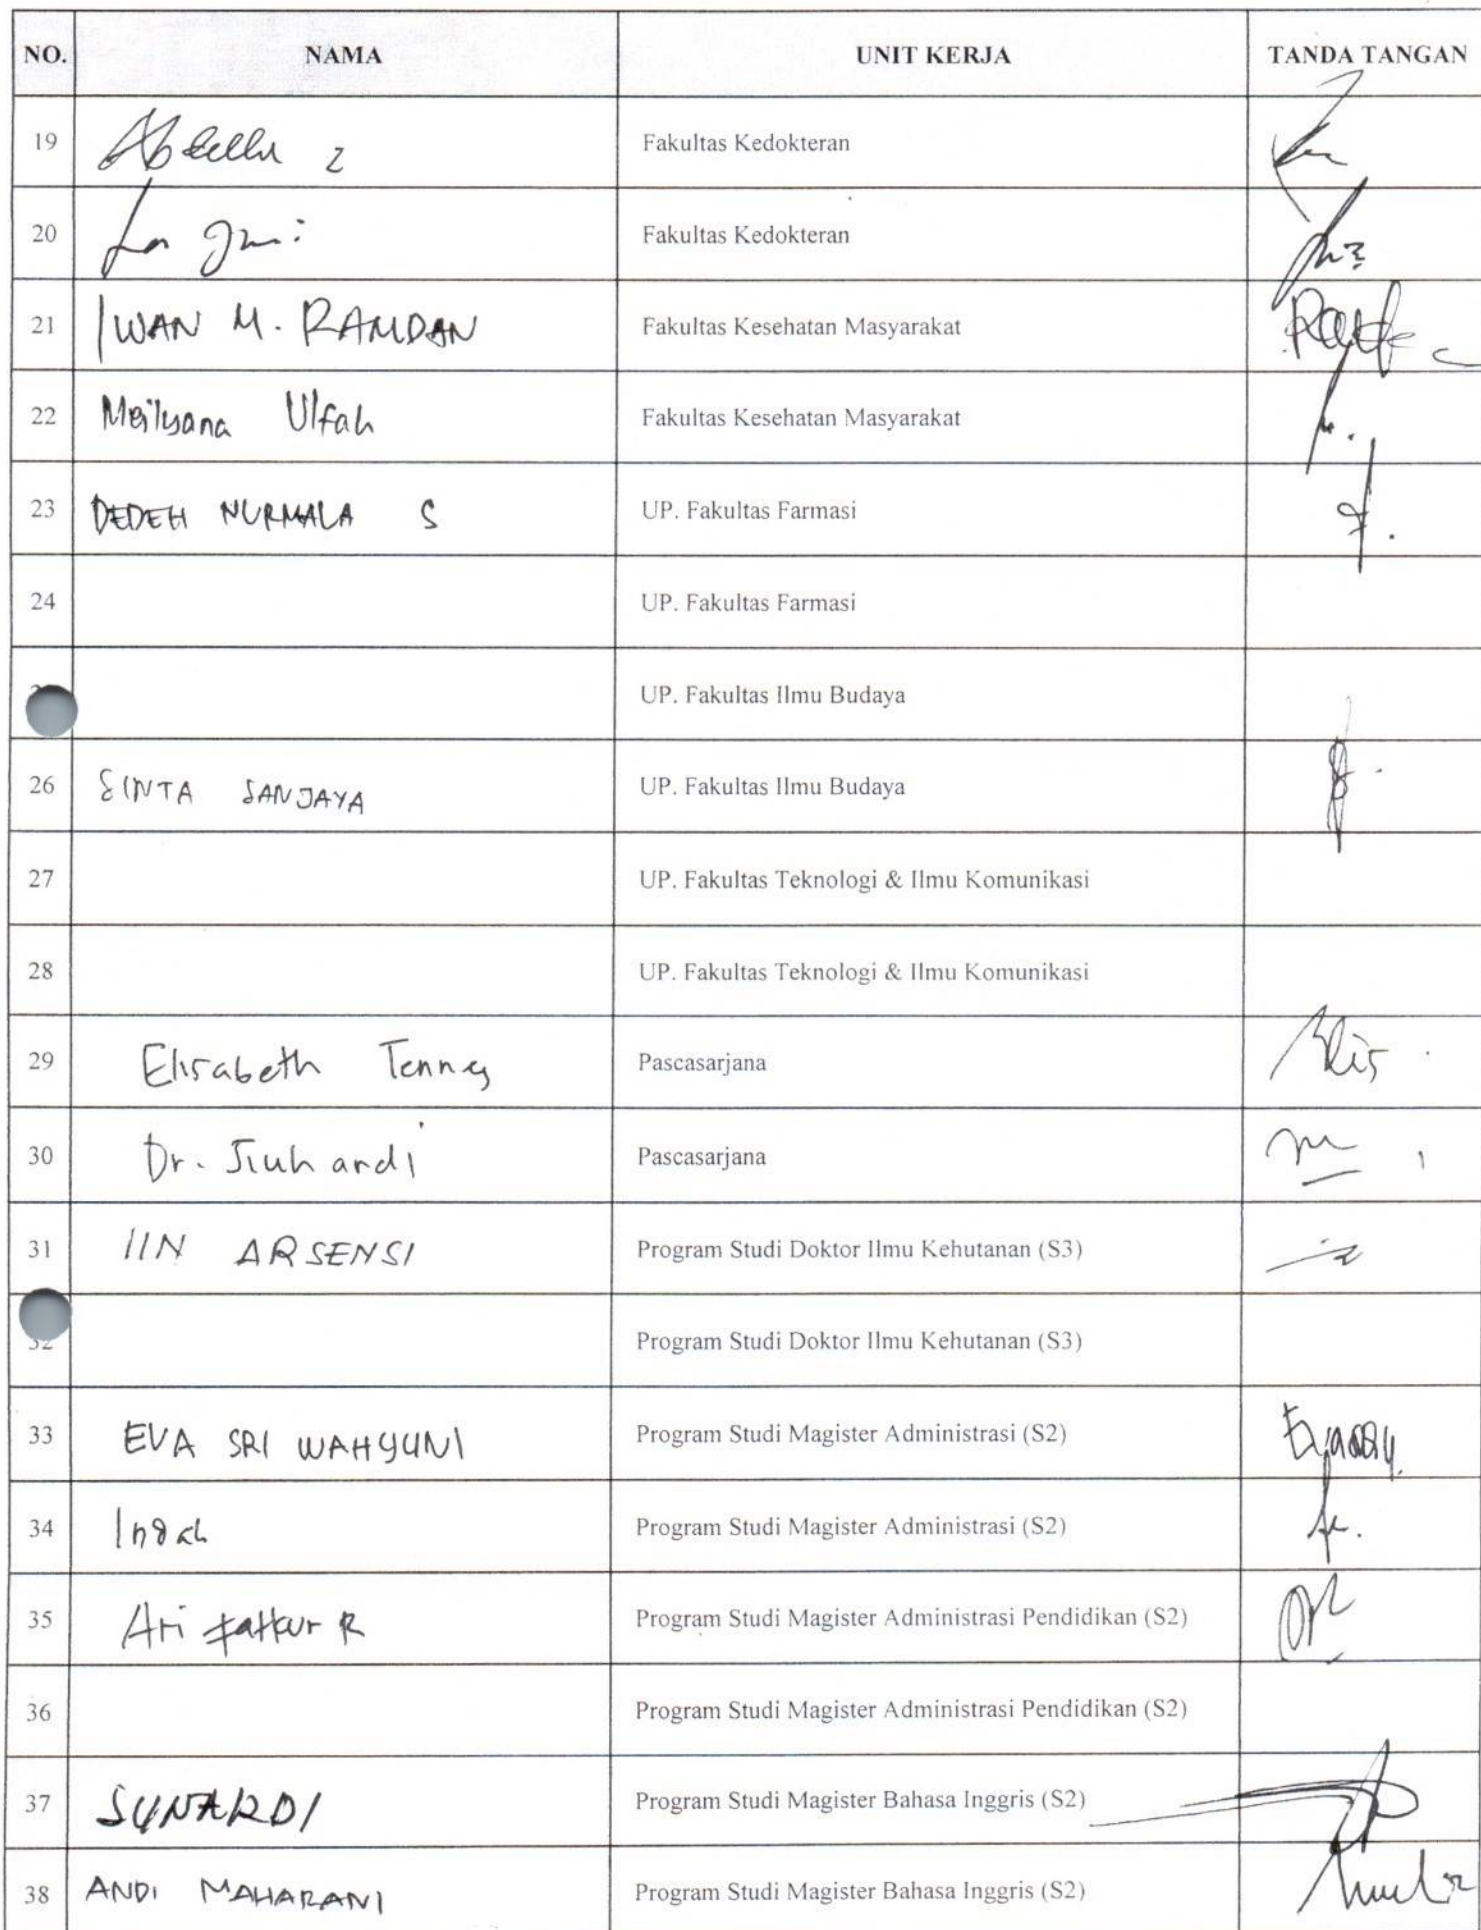 NO. NAMA UNIT KERJA TANDA TANGAN
19 Fakultas Kedokteran
20 Fakultas Kedokteran
21 IWAN M. RAMDAN Fakultas Kesehatan Masyarakat
22 Meilyana Ulfah Fakultas Kesehatan Masyarakat
23 DEDEH NURMALA S UP. Fakultas Farmasi
24 UP. Fakultas Farmasi
UP. Fakultas Ilmu Budaya
26 SINTA SANJAYA UP. Fakultas Ilmu Budaya
27 UP. Fakultas Teknologi & Ilmu Komunikasi
28 UP. Fakultas Teknologi & Ilmu Komunikasi
29 Elisabeth Pascasarjana Elis
30 Dr. Pascasarjana
31 IIN ARSENSI Program Studi Doktor Ilmu Kehutanan (S3)
32 Program Studi Doktor Ilmu Kehutanan (S3)
33 EVA SRI WAHYUNI Program Studi Magister Administrasi (S2)
34 Indah Program Studi Magister Administrasi (S2)
35 Ari Fatkur R Program Studi Magister Administrasi Pendidikan (S2)
36 Program Studi Magister Administrasi Pendidikan (S2)
37 SUNARDI Program Studi Magister Bahasa Inggris (S2)
38 ANDI MAHARANI Program Studi Magister Bahasa Inggris (S2)